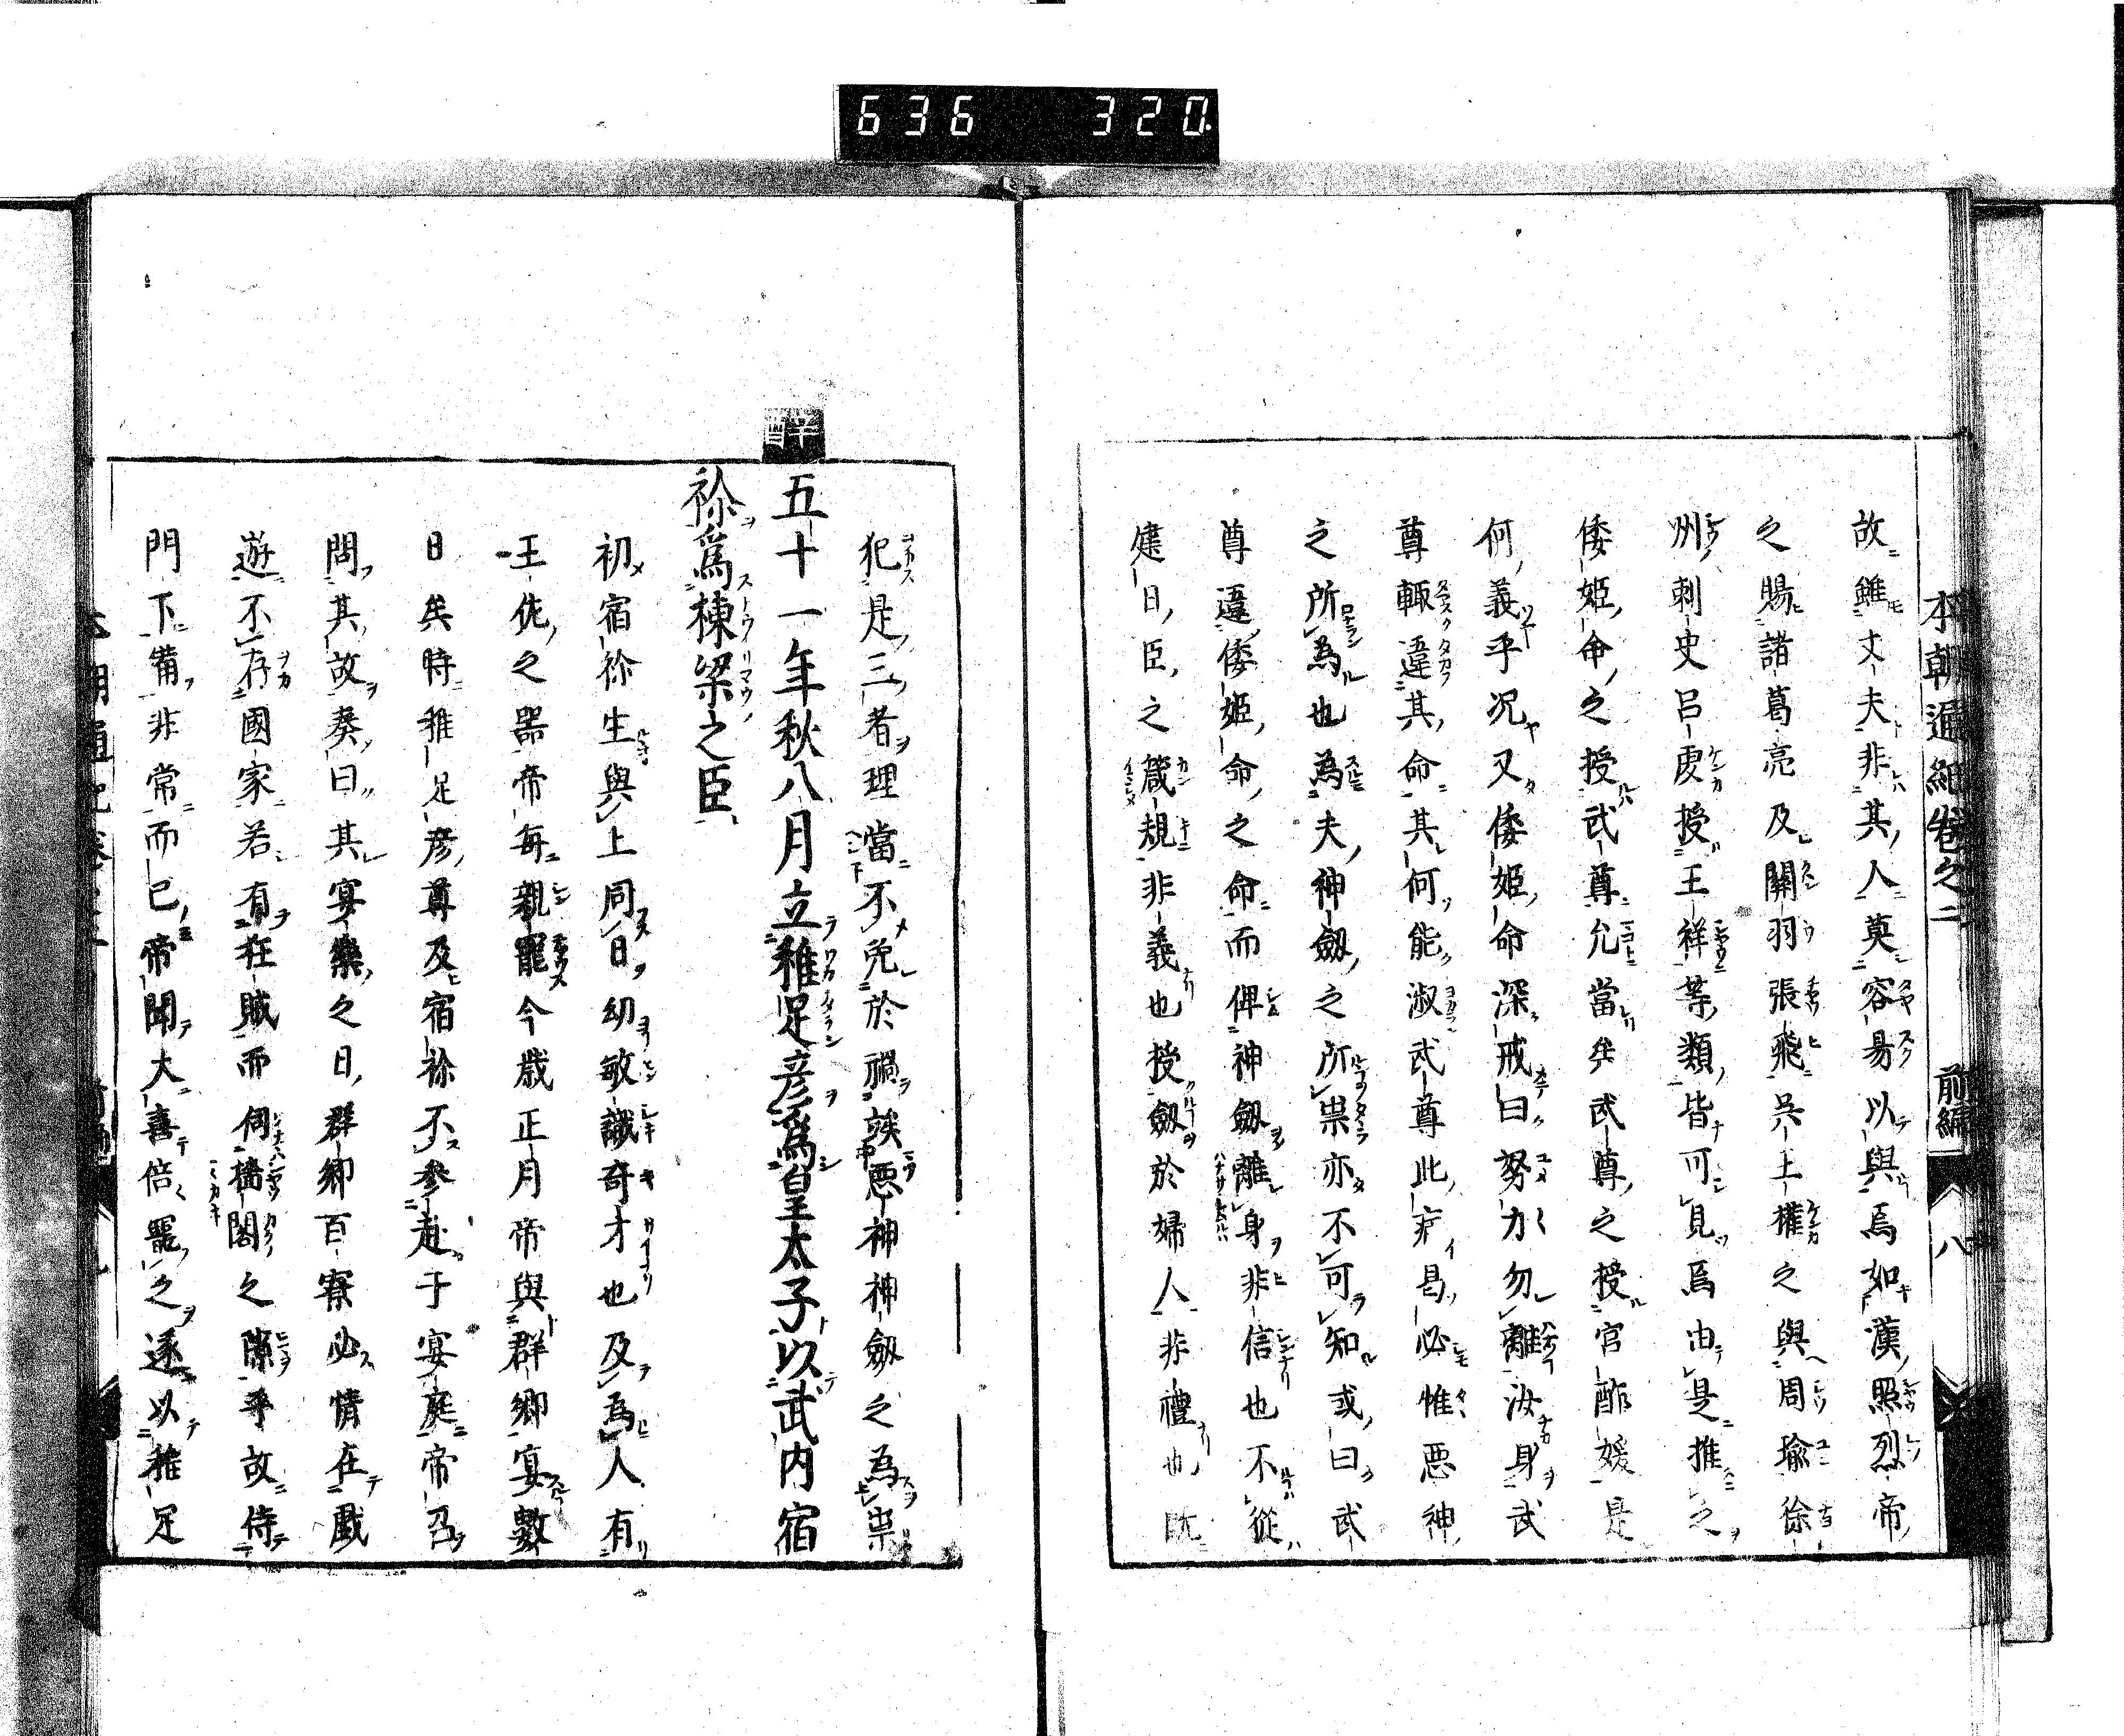 636 320.
本朝通紀卷之二 前編 八
故雖丈夫非其人莫容易以與焉如漢照烈帝
之賜諸葛亮及關羽張飛吳主權之與周瑜徐
州刺史呂虔授王祥等類皆可見焉由是推之
倭姬命之授武尊允當矣武尊之授官酢媛是
何義乎況又倭姬命深戒曰努力勿離汝身武
尊輙違其命其何能淑武尊此宑曷必惟惡神
之所為也為夫神劔之所祟亦不可知或曰武
尊違倭姬命之命而俾神劔離身非信也不從
建日臣之箴規非義也授劔於婦人非禮也既
犯是三者理當不免於禍誒惡神神劔之為祟
辛酉
五十一年秋八月立稚足彥爲皇太子以武内宿
祢爲棟梁之臣
初宿祢生與上同日幼敏識奇才也及為人有
王佐之器帝每親寵今歲正月帝與群卿宴數
日矣時稚足彥尊及宿祢不參赴于宴庭帝召
問其故奏曰其宴樂之日群卿百寮必情在戲
遊不存國家若有狂賊而伺墻閤之隙乎故侍
門下備非常而已帝聞大喜倍寵之遂以稚足